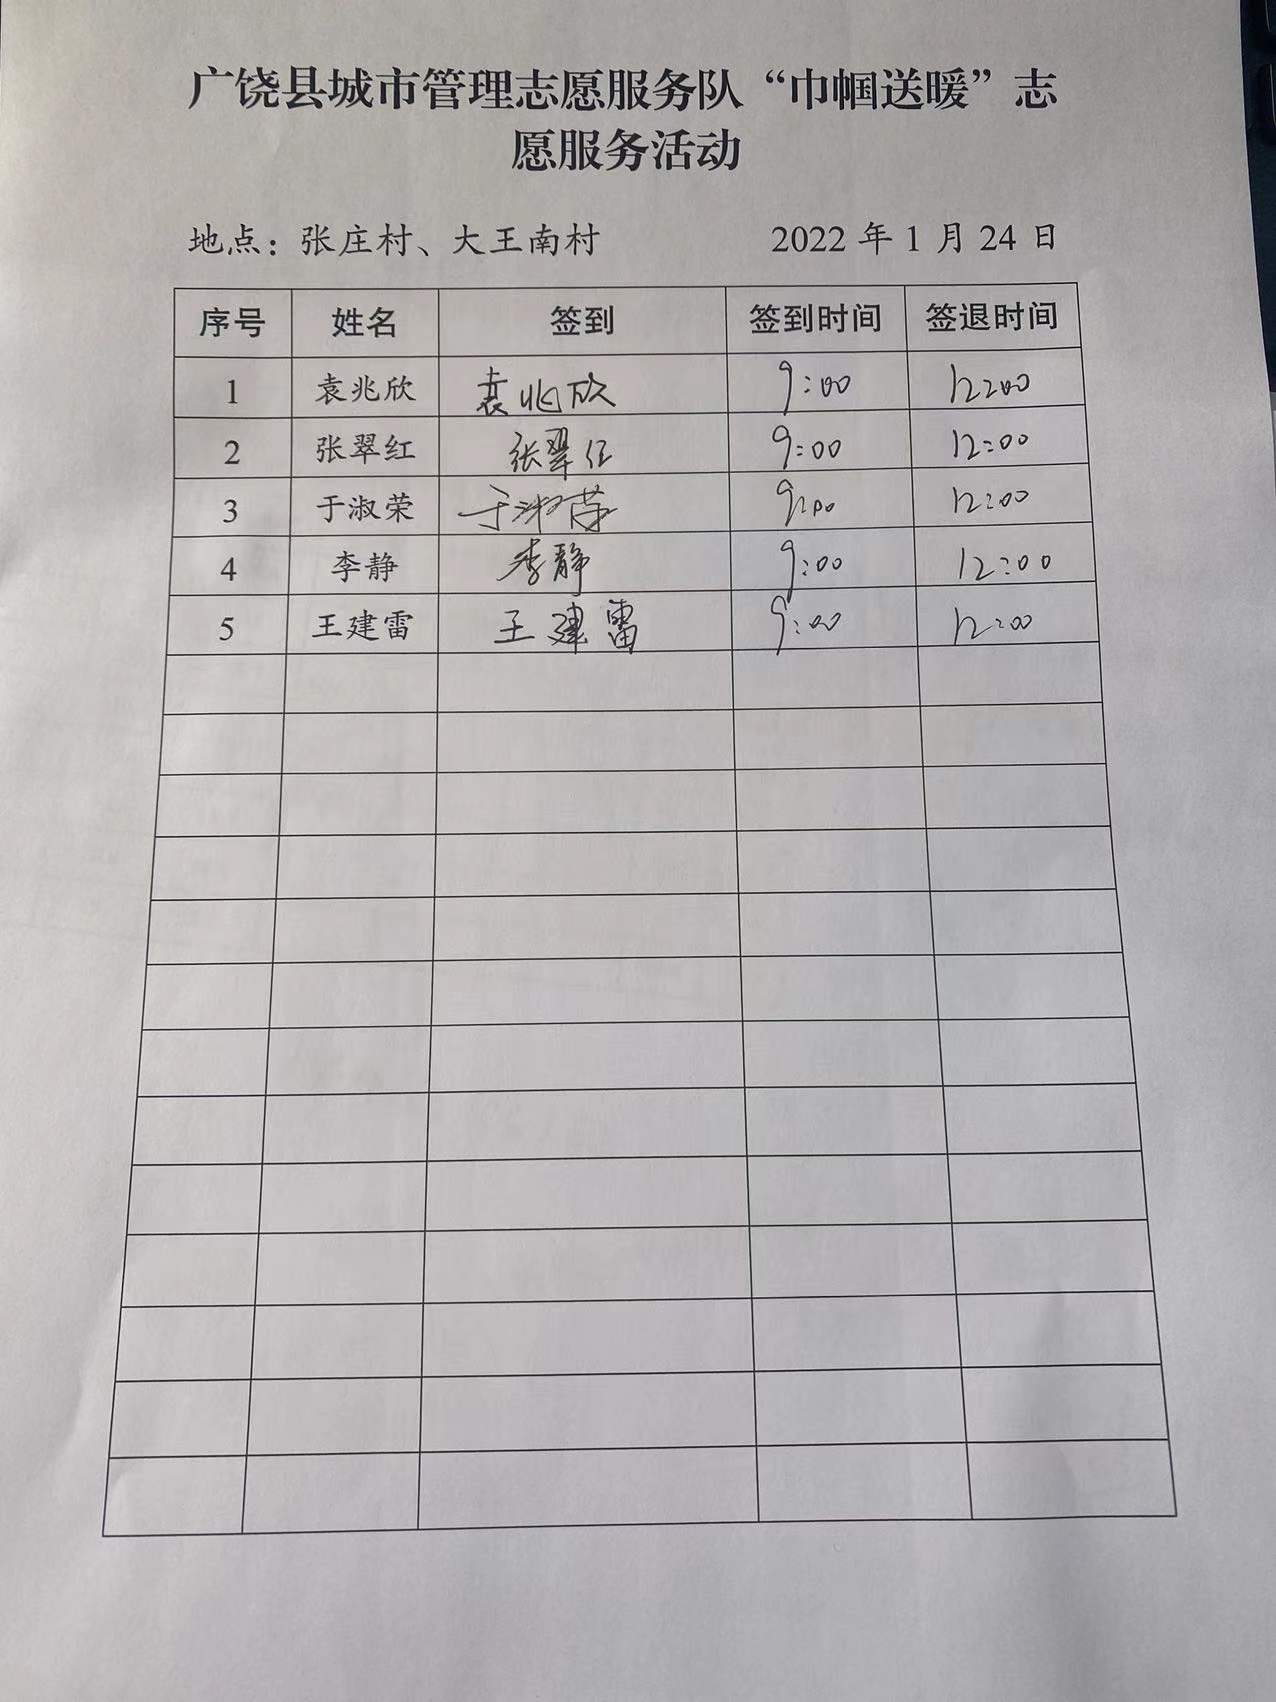 广饶县城市管理志愿服务队“巾帼送暖”志
愿服务活动
地点：张庄村、大王南村 2022 年 1 月 24 日
序号 姓名 签到 签到时间 签退时间
1 袁兆欣 袁兆欣 9:00 12:00
2 张翠红 张翠红 9:00 12:00
3 于淑荣 于淑荣 9:00 12:00
4 李静 李静 9:00 12:00
5 王建雷 王建雷 9:00 12:00